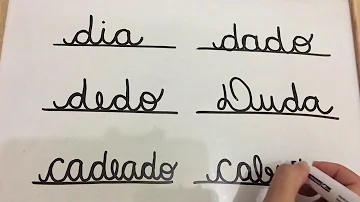 dia dado
dedo Duda
cadeado